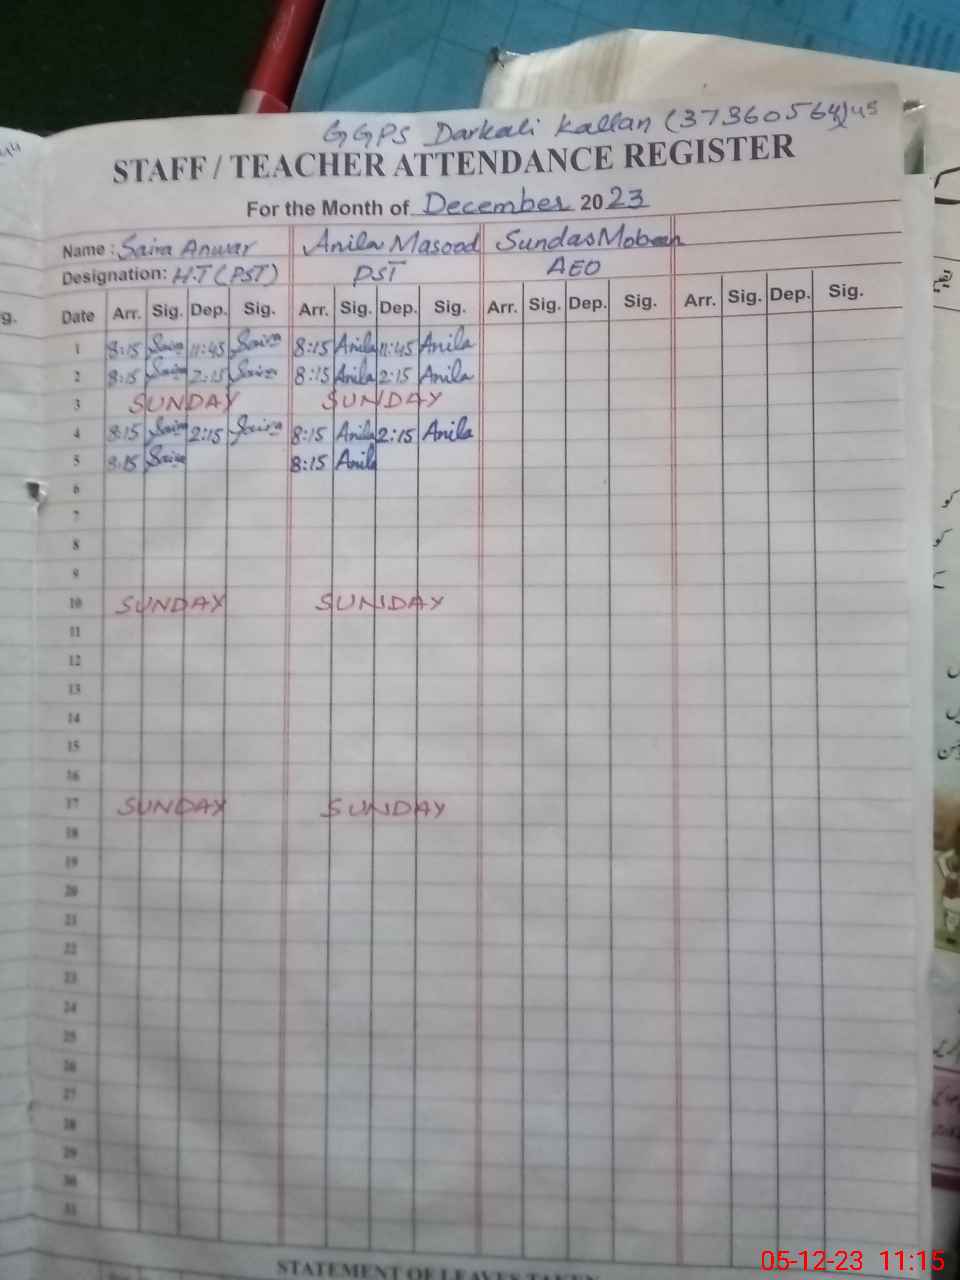 GGPS Darkali Kallan (37360564)
STAFF / TEACHER ATTENDANCE REGISTER
For the Month of December 2023
Name : Saira Anwar Anila Masood Sundas Mobeen
Designation: H.T (PST) PST AEO
Date Arr. Sig. Dep. Sig. Arr. Sig. Dep. Sig. Arr. Sig. Dep. Sig. Arr. Sig. Dep. Sig.
1 8:15 Saira 11:45 Saira 8:15 Anila 11:45 Anila
2 8:15 Saira 2:15 Saira 8:15 Anila 2:15 Anila
3 SUNDAY SUNDAY
4 8:15 Saira 2:15 Saira 8:15 Anila 2:15 Anila
5 8:15 Saira 8:15 Anila
6
7
8
9
10 SUNDAY SUNDAY
11
12
13
14
15
16
17 SUNDAY SUNDAY
18
19
20
21
22
23
24
25
26
27
28
29
30
31
STATEMENT OF LEAVES TAKEN
05-12-23 11:15